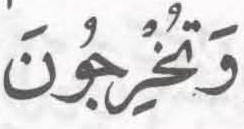 وَتُخْرِجُونَ